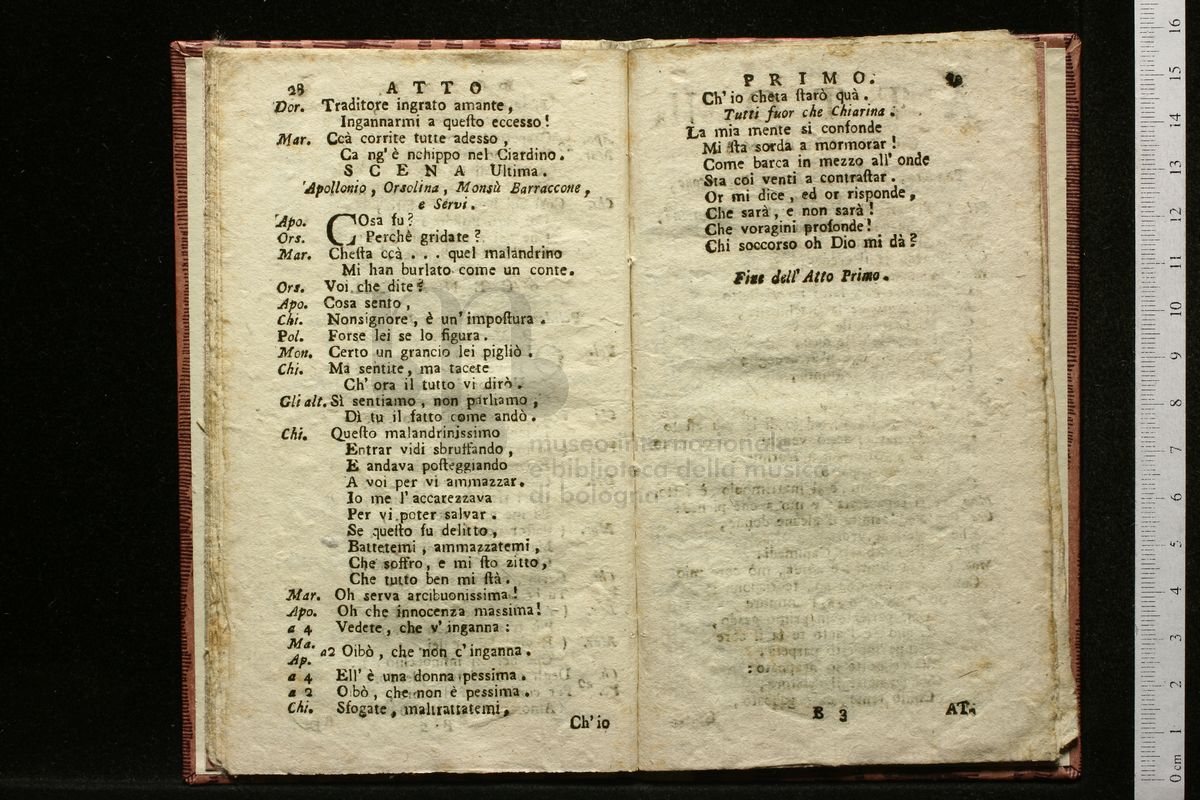 28 ATTO
Dor. Traditore ingrato amante,
Ingannarmi a queſto ecceſſo!
Mar. Ccà corrite tutte adesso,
Ca ng' è nchippo nel Ciardino.
SCENA Ultima.
Apollonio, Orsolina, Monsù Barraccone,
e Servi.
Apo. COsa fu?
Ors. Perchè gridate?
Mar. Cheſta ccà . . . quel malandrino
Mi han burlato come un conte.
Ors. Voi che dite?
Apo. Cosa sento,
Chi. Nonsignore, è un' impoſtura.
Pol. Forse lei se lo figura.
Mon. Certo un grancio lei pigliò.
Chi. Ma sentite, ma tacete
Ch' ora il tutto vi dirò.
Gli alt. Sì sentiamo, non parliamo,
Dì tu il fatto come andò.
Chi. Queſto malandriniſſimo
Entrar vidi sbruffando,
E andava poſteggiando
A voi per vi ammazzar.
Io me l' accarezzava
Per vi poter salvar.
Se queſto fu delitto,
Battetemi, ammazzatemi,
Che soffro, e mi ſto zitto,
Che tutto ben mi ſtà.
Mar. Oh serva arcibuoniſſima!
Apo. Oh che innocenza massima!
a 4 Vedete, che v' inganna:
Ma.
Ap. a2 Oibò, che non c' inganna.
a 4 Ell' è una donna peſſima.
a 2 Oibò, che non è peſſima.
Chi. Sfogate, maltrattatemi,
Ch' io
PRIMO.
Ch' io cheta ſtarò quà.
Tutti fuor che Chiarina.
La mia mente si confonde
Mi ſta sorda a mormorar!
Come barca in mezzo all' onde
Sta coi venti a contraſtar.
Or mi dice, ed or risponde,
Che sarà, e non sarà!
Che voragini profonde!
Chi soccorso oh Dio mi dà?
Fine dell' Atto Primo.
B 3 AT-
museo internazionale
e biblioteca della musica
di bologna
16
15
14
13
12
11
10
9
8
7
6
5
4
3
2
1
0 cm